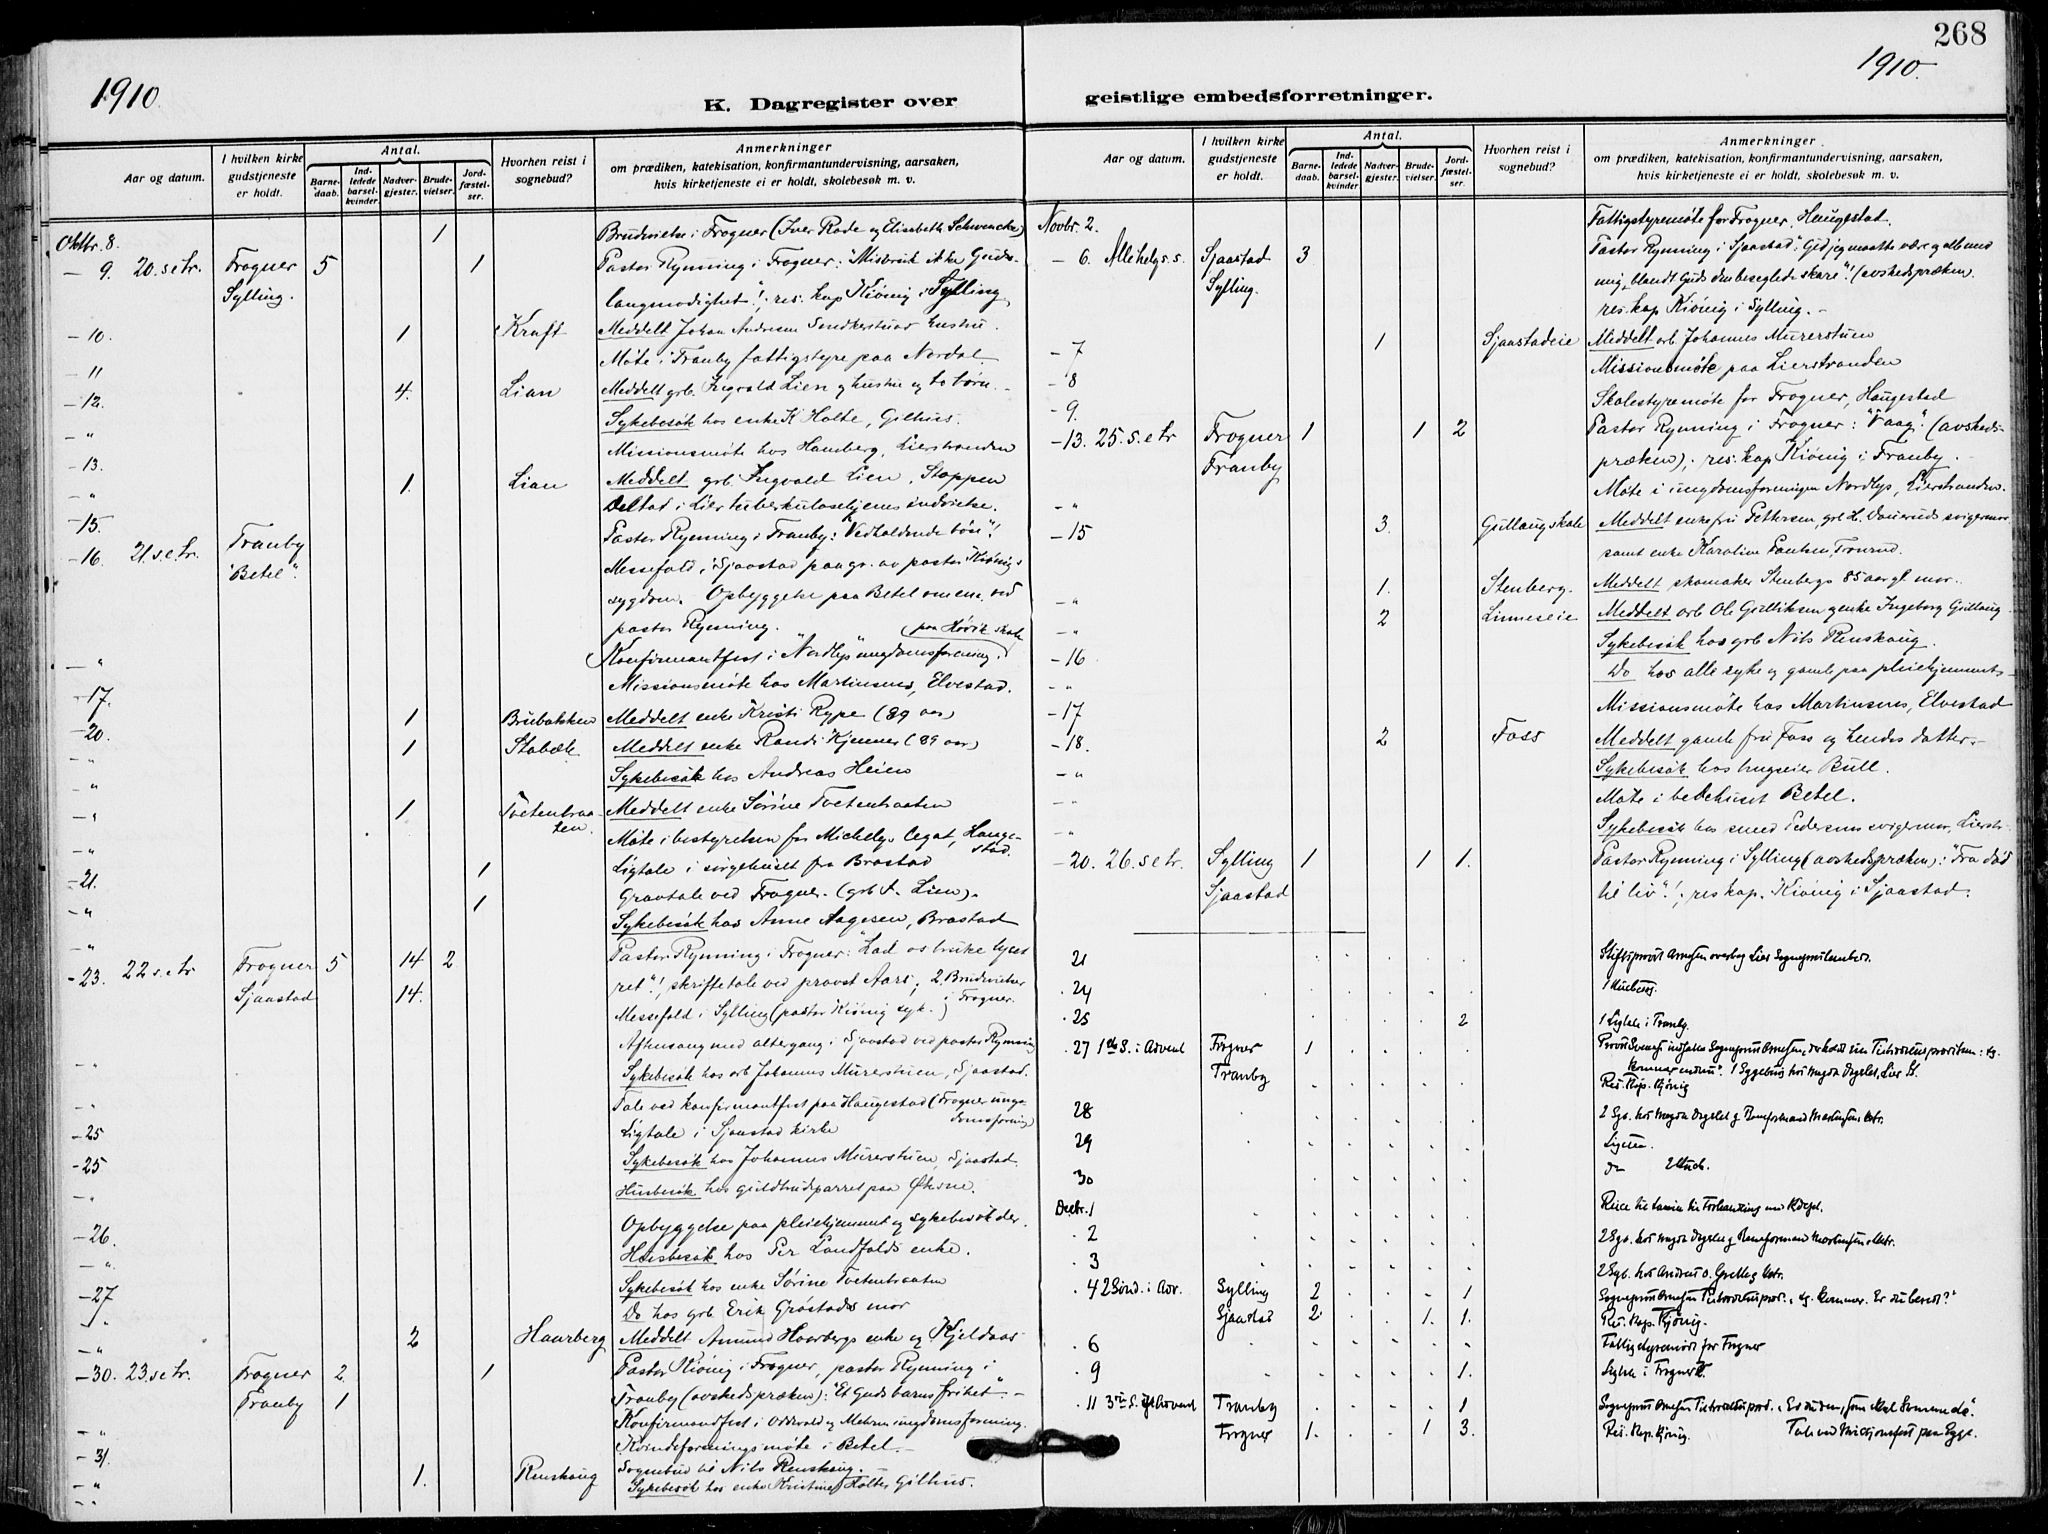 268
1910.
1910.
K. Dagregister over
geistlige embedsforretninger.
Aar og datum.
I hvilken kirke gudstjeneste er holdt.
Antal.
Barnedaab.
Indledede barselkvinder.
Nadvergjester.
Brudevielser.
Jordfæstelser.
Hvorhen reist i sognebud?
Anmerkninger
om prædiken, katekisation, konfirmantundervisning, aarsaken,
hvis kirketjeneste ei er holdt, skolebesøk m. v.
Oktbr. 8. 1 Brudvielse i Frogner (Iver Rode og Elisabeth Schwencke)
- 9. 20. s. e. tr. Frogner 5 1 Pastor Rynning i Frogner: "Misbruk ikke Guds
Sylling. langmodighet"!; res. kap. Kiønig i Sylling
- 10. 1 Kraft Meddelt Johan Andersen hustru.
- 11 Møte i Tranby fattigstyre paa Nordal
- 12. 4. Lian Meddelt grb. Ingvald Lien og hustru og to børn.
- " Sykebesøk hos enke K Holte, Gilhus.
- 13. Missionsmøte hos Hamberg, Lierstranden
- " 1. Lian Meddelt grb. Ingvald Lien, Stoppen
- 15. Deltad i Lier tuberkulosehjems indvielse.
- 16. 21. s. e. tr. Tranby Pastor Rynning i Tranby: "Vedholdende bøn"!
"Betel". Messefald i Sjaastad paa gr. av pastor Kiønigs
sygdom. Opbyggelse paa Betel om em. ved
pastor Rynning. (paa Høvik skole
- " Konfirmantfest i "Nordlys" ungdomsforening.
- 17. Missionsmøte hos Martinsens, Elvestad.
- 20. 1 Brubakken Meddelt enke Kristi Rype (89 aar)
- " 1 Stabæk Meddelt enke Randi Kjennes (89 aar)
- " Sykebesøk hos Andreas Heien
- " 1 Tvetenbraaten. Meddelt enke Sørine Tvetenbraaten
- " Møte i bestyrelsen for Michelys Legat, Haugestad.
- 21. 1 Ligtale i sørgehuset fra Brastad
- " 1 Gravtale ved Frogner. (grb. A. Lien).
- " Sykebesøk hos Anne Aagesen, Brastad
- 23. 22 s. e. tr Frogner 5 14 2 Pastor Rynning i Frogner: "Lad os bruke lyset
Sjaastad 14. ret"!, skriftetale ved provst Aars; 2 Brudvielser
i Frogner.
Messefald i Sylling (pastor Kiønig syk.)
Aftensang med altergang i Sjaastad ved pastor Rynning
- " Sykebesøk hos arb. Johannes Murerstuen, Sjaastad.
- " Tale ved konfirmantfest paa Haugestad (Frogner ungdomsforening)
- 25 Ligtale i Sjaastad kirke
- 25 Sykebesøk hos Johannes Murerstuen, Sjaastad.
- " Husbesøk hos guldbrudeparret paa Øksne.
- 26. Opbyggelse paa pleiehjemmet og sykebesøk der.
- " Husbesøk hos Per Landfalds enke.
- 27 Sykebesøk hos enke Sørine Tvetenbraaten
Do hos grb. Erik Grøstads mor
- " 2 Haarberg Meddelt Amund Haarbergs enke og Kjeldaas
- 30. 23. s e tr. Frogner 2 1 Pastor Kiønig i Frogner, pastor Rynning i
Tranby 1 Tranby (avskedspræken): "Et Guds barns frihet". -
- " Konfirmandfest i Oddevald og Mehren ungdomsforening.
- 31. Kvindeforeningsmøte i Betel. -
- " 1. Renskaug Sognebud til Nils Renskaug. -
- " Sykebesøk hos enke Kristine Holte, Gilhus.
Aar og datum.
I hvilken kirke gudstjeneste er holdt.
Antal.
Barnedaab.
Indledede barselkvinder.
Nadvergjester.
Brudevielser.
Jordfæstelser.
Hvorhen reist i sognebud?
Anmerkninger
om prædiken, katekisation, konfirmantundervisning, aarsaken,
hvis kirketjeneste ei er holdt, skolebesøk m. v.
Novbr. 2. Fattigstyremøte for Frogner, Haugestad.
- 6. Allehelgs. s. Sjaastad 3 Pastor Rynning i Sjaastad: "Gid jeg maatte være og bland
Sylling. mig, blandt Guds den beseglede skare"! (avskedspræken.
res. kap Kiønig i Sylling. -
- 7 1 Sjaastadeie Meddelt arb. Johannes Murerstuen
- 8 Missionsmøte paa Lierstranden
- 9. Skolestyremøte for Frogner, Haugestad
- 13. 25. s. e tr Frogner 1 1 2 Pastor Rynning i Frogner: "Vaag"! (avskeds-
Tranby præken); res. kap Kiønig i Tranby.
- " Møte i ungdomsforeningen Nordlys, Lierstranden.
- 15 3. Gullaug skole Meddelt enkefru Pettersen, grb. L. svigermor
samt enke Karoline Paulsen,
- " 1. Stenberg. Meddelt skomaker Stenbergs 85 aar gl. mor.
- " 2 Linneseie Meddelt arb. Ole Gulliksen og enke Ingeborg Gullaug
- 16 Sykebesøk hos grb. Nils Renskaug.
- " Do hos alle syke og gamle paa pleiehjemmet
- 17 Missionsmøte hos Martinsens, Elvestad
- 18. 2 Foss Meddelt gamle fru Foss og hendes datter.
- " Sykebesøk hos brugseier Bull.
- " Møte i bedehuset Betel.
- " Sykebesøk hos smed Pedersens svigermor, Lierstr.
- 20. 26. s e tr. Sylling 1 1 1. Pastor Rynning i Sylling (avskedspræken): "Fra død
Sjaastad til liv"!; res kap. Kiønig i Sjaastad.
21 Stiftsprovst Arnesen overtog Lier Sogneprestembede.
. 24
. 25 2 1 Ligtale i Tranby.
. 27 1ste S. i Advent Frogner 1
Tranby Res. Kap. Kjønig
28
29
30
Decbr. 1
. 2
. 3
. 4 2 Sønd. i Adv. Sylling 2 1
Sjaastad 2 1. 1. Res. Kap. Kjønig.
. 6 Fattigstyremøte for Frogner
. 9 1. Ligtale i Frogner K.
. 11 3die S. i Advent Tranby 1
Frogner 1. 1 3. Res. Kap. Kjønig. Tale ved Missionsfest paa Egge.